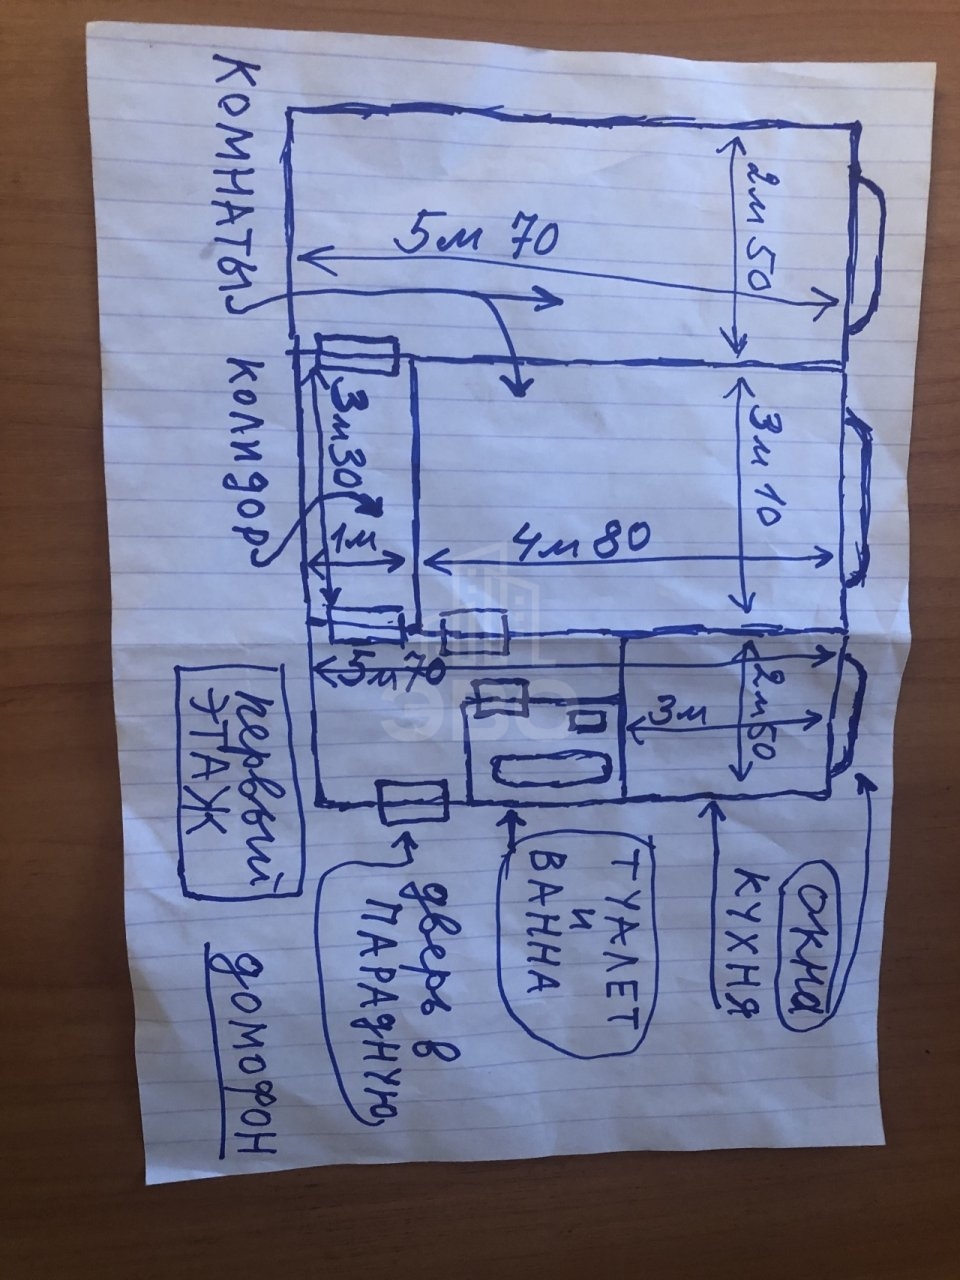 КОМНАТЫ
5м 70
2м 50
КОЛИДОР
3м30
1м
4м 80
3м 10
5м 70
3м
2м50
первый
ЭТАЖ
ОКНА
КУХНЯ
ТУАЛЕТ
и
ВАННА
дверь в
ПАРАДНУЮ
ДОМОФОН